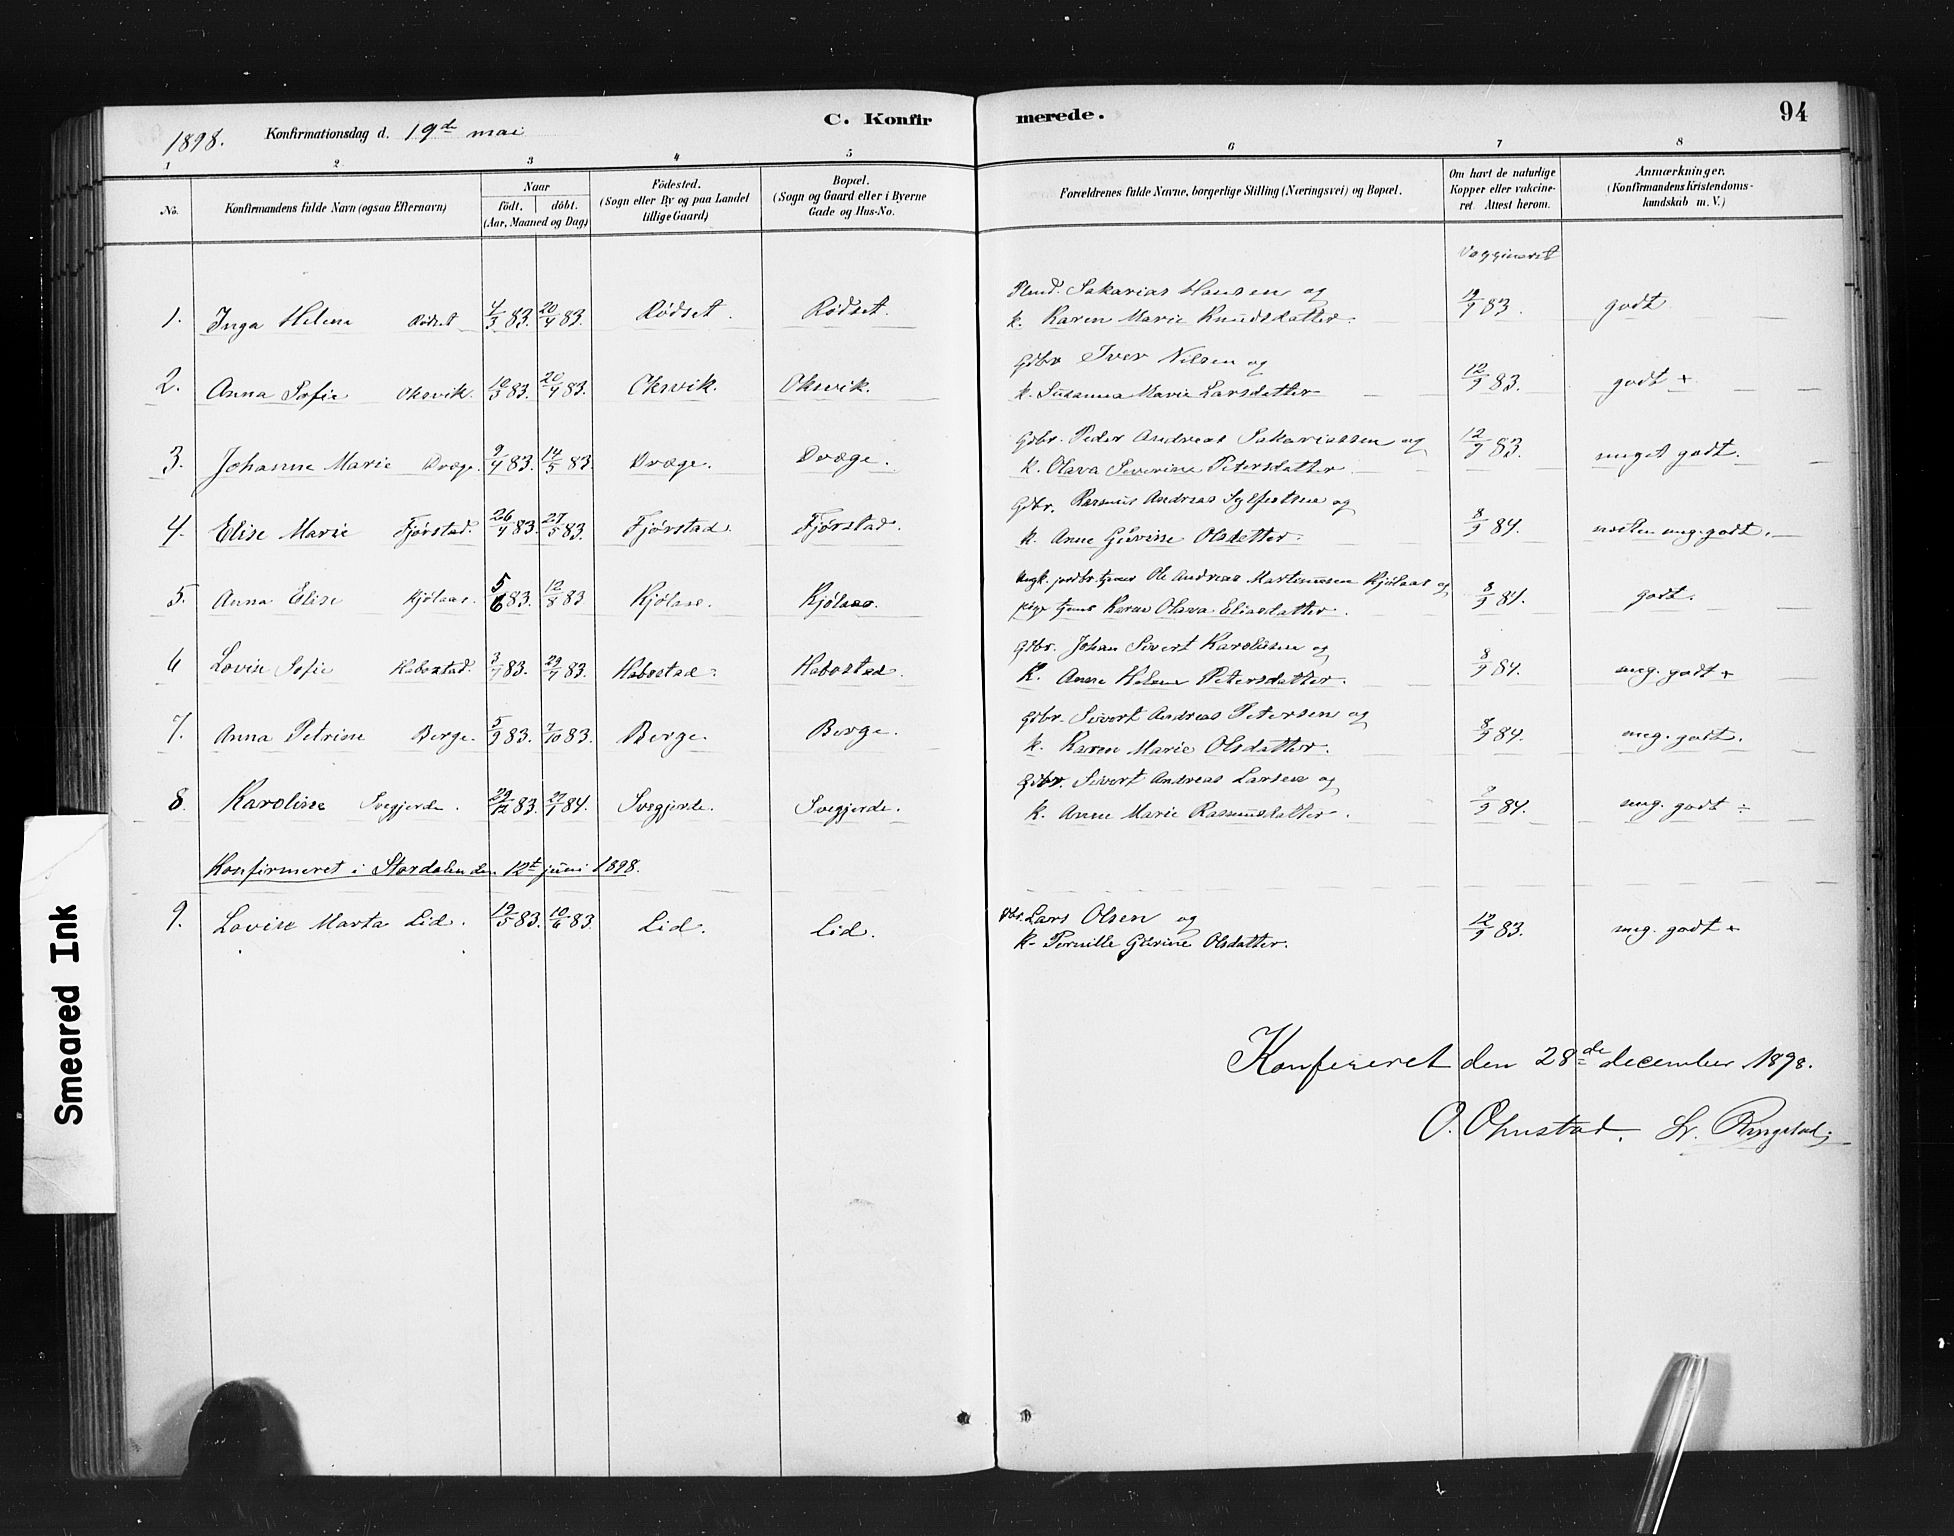 C. Konfirmerede. 94
1898. Konfirmationsdag d. 19de mai
1 2 3 4 5 6 7 8
No. Konfirmandens fulde Navn (ogsaa Efternavn) Naar født. døbt. (Aar, Maaned og Dag) Fødested. (Sogn eller By og paa Landet tillige Gaard) Bopæl. (Sogn og Gaard eller i Byerne Gade og Hus-No. Forældrenes fulde Navne, borgerlige Stilling (Næringsvei) og Bopæl. Om havt de naturlige Kopper eller vakcineret. Attest herom. Anmærkninger. (Konfirmandens Kristendomskundskab m. V.)
Vaggineret
Sakarias Hansen og
1. Inga Helene Rødset 4/3 83. 20/4 83. Rødset. Rødset. k. Karen Marie Knudsdatter. 12/9 83. godt
Gdbr. Iver Nilsen og
2. Anna Sofie Oksvik. 10/3 83. 20/4 83. Oksvik Oksvik. k. Susanna Marie Larsdatter 12/9 83. godt +
Gdbr. Peder Andreas Sakariassen og
3. Johanne Marie Dræge. 9/4 83. 14/5 83. Dræge. Dræge. k. Olava Severine Petersdatter. 12/9 83. meget godt.
Gdbr. Rasmus Andreas og
4. Elise Marie Fjørstad. 26/4 83. 27/5 83. Fjørstad. Fjørstad. k. Anne Olsdatter. 8/9 84. næsten meg. godt.
Ole Andreas Martinussen Kjølaas og
5. Anna Elise Kjølaas. 5/6 83. 12/8 83 Kjølaas. Kjølaas. pige Karen Olava Eliasdatter. 8/9 84. godt.
Gdbr. Johan Sivert Karolusen og
6 Lovise Sofie Habostad. 3/7 83. 29/7 83. Habostad. Habostad. k. Anne Helene Petersdatter. 8/9 84. meg. godt +
Gdbr. Sivert Andreas Petersen og
7. Anna Petrine Berge. 5/9 83. 7/10 83. Berge. Berge. k. Karen Marie Olsdatter. 8/9 84. meg. godt.
Gdbr. Sivert Andreas Larsen og
8. Karoline Svegjerde. 29/12 83. 27/1 84. Svegjerde. Svegjerde. k. Anne Marie Rasmusdatter. 9/9 84. meg. godt ÷
Konfirmeret i Stordalen den 12t juni 1898.
9. Lovise Marta Lid. 19/5 83. 10/6 83. Lid. Lid. Gbr. Lars Olsen og
k. Pernille Gurine Olsdatter. 12/9 83. meg. godt +
Konfereret den 28de december 1898.
O. Ringstad.
Smeared Ink